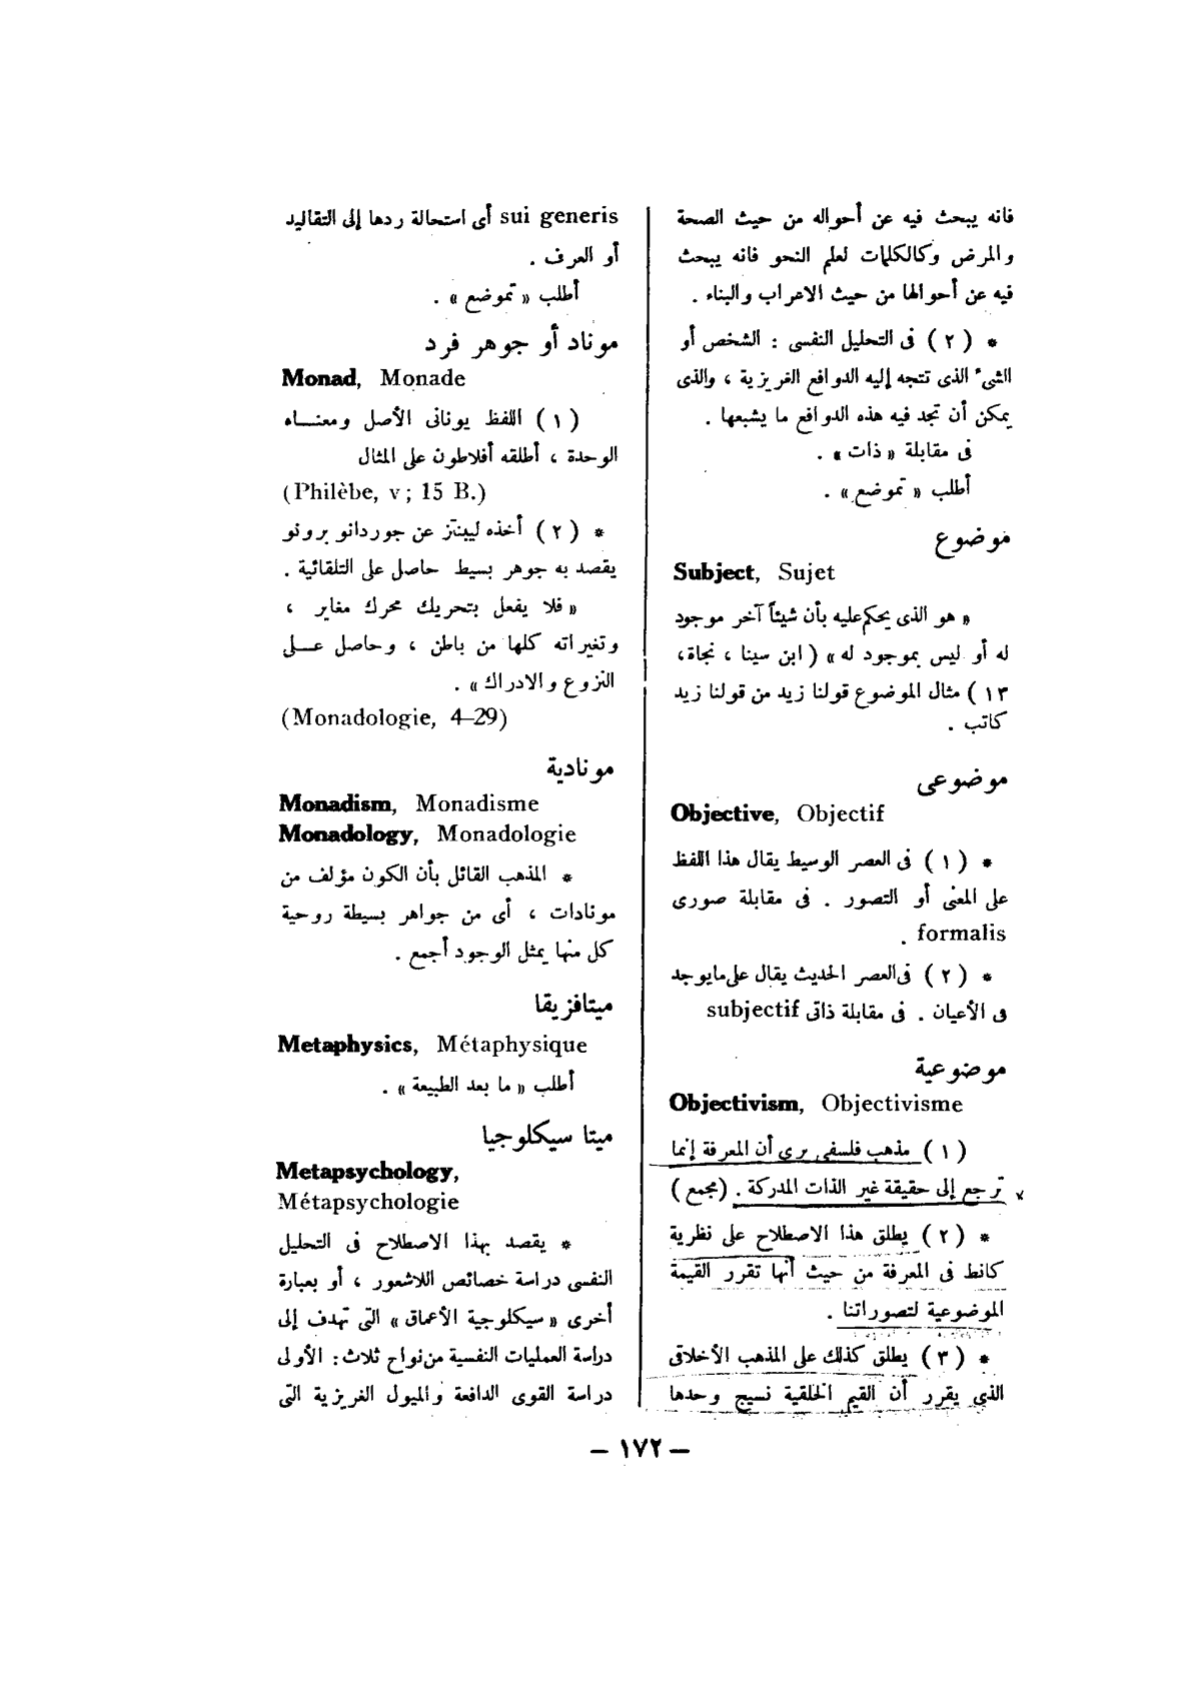 فانه يبحث فيه عن أحواله من حيث الصحة
والمرض وكالكلمات لعلم النحو فانه يبحث
فيه عن أحوالها من حيث الاعراب والبناء .
* ( ٢ ) فى التحليل النفسى : الشخص أو
الشىء الذى تتجه إليه الدوافع الغريزية ، والذى
يمكن أن تجد فيه هذه الدوافع ما يشبعها .
فى مقابلة « ذات » .
أطلب « تموضع » .
موضوع
Subject, Sujet
« هو الذى يحكم عليه بأن شيئاً آخر موجود
له أو ليس بموجود له » ( ابن سينا ، نجاة،
١٣ ) مثال الموضوع قولنا زيد من قولنا زيد
كاتب .
موضوعى
Objective, Objectif
* ( ١ ) فى العصر الوسيط يقال هذا اللفظ
على المعنى أو التصور . فى مقابلة صورى
formalis .
* ( ٢ ) فى العصر الحديث يقال على مايوجد
فى الأعيان . فى مقابلة ذاتى subjectif
موضوعية
Objectivism, Objectivisme
( ١ ) مذهب فلسفى يرى أن المعرفة إنما
ترجع إلى حقيقة غير الذات المدركة . (مجمع )
* ( ٢ ) يطلق هذا الاصطلاح على نظرية
كانط فى المعرفة من حيث أنها تقرر القيمة
الموضوعية لتصوراتنا .
* ( ٣ ) يطلق كذلك على المذهب الأخلاقى
الذي يقرر أن القيم الخلقية نسيج وحدها
sui generis أى استحالة ردها إلى التقاليد
أو العرف .
أطلب « تموضع » .
موناد أو جوهر فرد
Monad, Monade
( ١ ) اللفظ يونانى الأصل ومعنـاه
الوحدة ، أطلقه أفلاطون على المثال
(Philèbe, v ; 15 B.)
* ( ٢ ) أخذه ليبنتز عن جوردانو برونو
يقصد به جوهر بسيط حاصل على التلقائية .
« فلا يفعل بتحريك محرك مغاير ،
وتغيراته كلها من باطن ، وحاصل عـلى
النزوع والادراك » .
(Monadologie, 4–29)
مونادية
Monadism, Monadisme
Monadology, Monadologie
* المذهب القائل بأن الكون مؤلف من
مونادات ، أى من جواهر بسيطة روحية
كل منها يمثل الوجود أجمع .
ميتافزيقا
Metaphysics, Métaphysique
أطلب « ما بعد الطبيعة » .
ميتا سيكلوجيا
Metapsychology,
Métapsychologie
* يقصد بهذا الاصطلاح فى التحليل
النفسى دراسة خصائص اللاشعور ، أو بعبارة
أخرى « سيكلوجية الأعماق » التى تهدف إلى
دراسة العمليات النفسية من نواح ثلاث : الأولى
دراسة القوى الدافعة والميول الغريزية التى
– ١٧٢ –